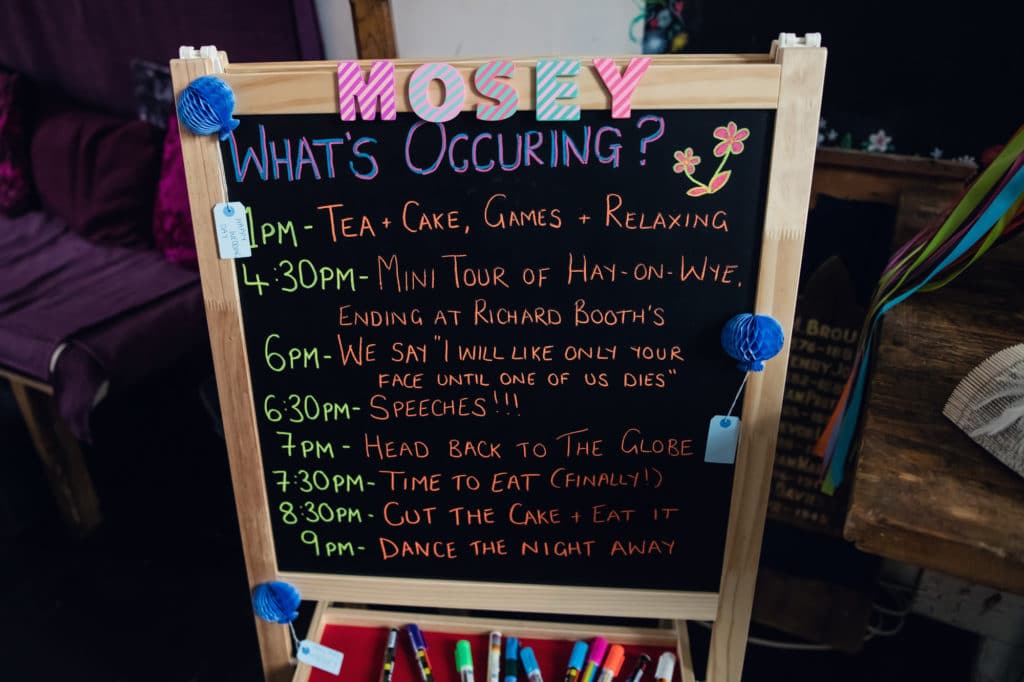 MOSEY
WHAT'S OCCURING?
1PM - TEA + CAKE, GAMES + RELAXING
4:30PM - MINI TOUR OF HAY-ON-WYE,
ENDING AT RICHARD BOOTH'S
6PM - WE SAY "I WILL LIKE ONLY YOUR
FACE UNTIL ONE OF US DIES"
6:30PM - SPEECHES!!!
7PM - HEAD BACK TO THE GLOBE
7:30PM - TIME TO EAT (FINALLY!)
8:30PM - CUT THE CAKE + EAT IT
9PM - DANCE THE NIGHT AWAY